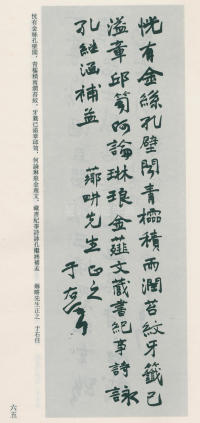 恍有金絲孔壁聞青櫺積雨潤苔紋牙籤已
溢章邱笥何論琳琅金薤文藏書紀事詩詠
孔繼涵補孟
薌畊先生正之
于右任
恍有金絲孔壁聞，青櫺積雨潤苔紋。牙籤已溢章邱笥，何論琳琅金薤文。藏書紀事詩詠孔繼涵補孟　薌畊先生正之　于右任
六五